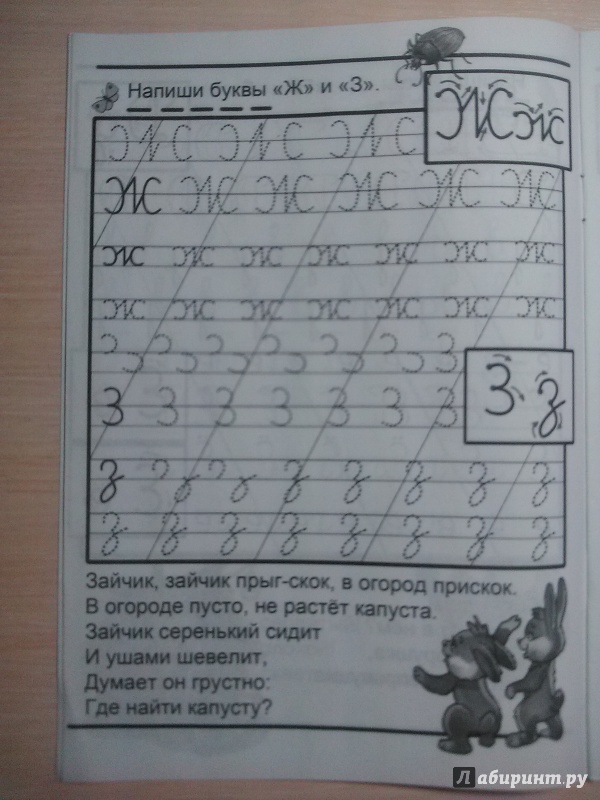 Напиши буквы «Ж» и «З».
Ж ж
Ж Ж Ж
Ж Ж Ж Ж Ж Ж
ж ж ж ж ж ж ж
ж ж ж ж ж ж ж
З з
З З З З З З З
З З З З З З З
з з з з з з з з
з з з з з з з з
Зайчик, зайчик прыг-скок, в огород прискок.
В огороде пусто, не растёт капуста.
Зайчик серенький сидит
И ушами шевелит,
Думает он грустно:
Где найти капусту?
Лабиринт.ру